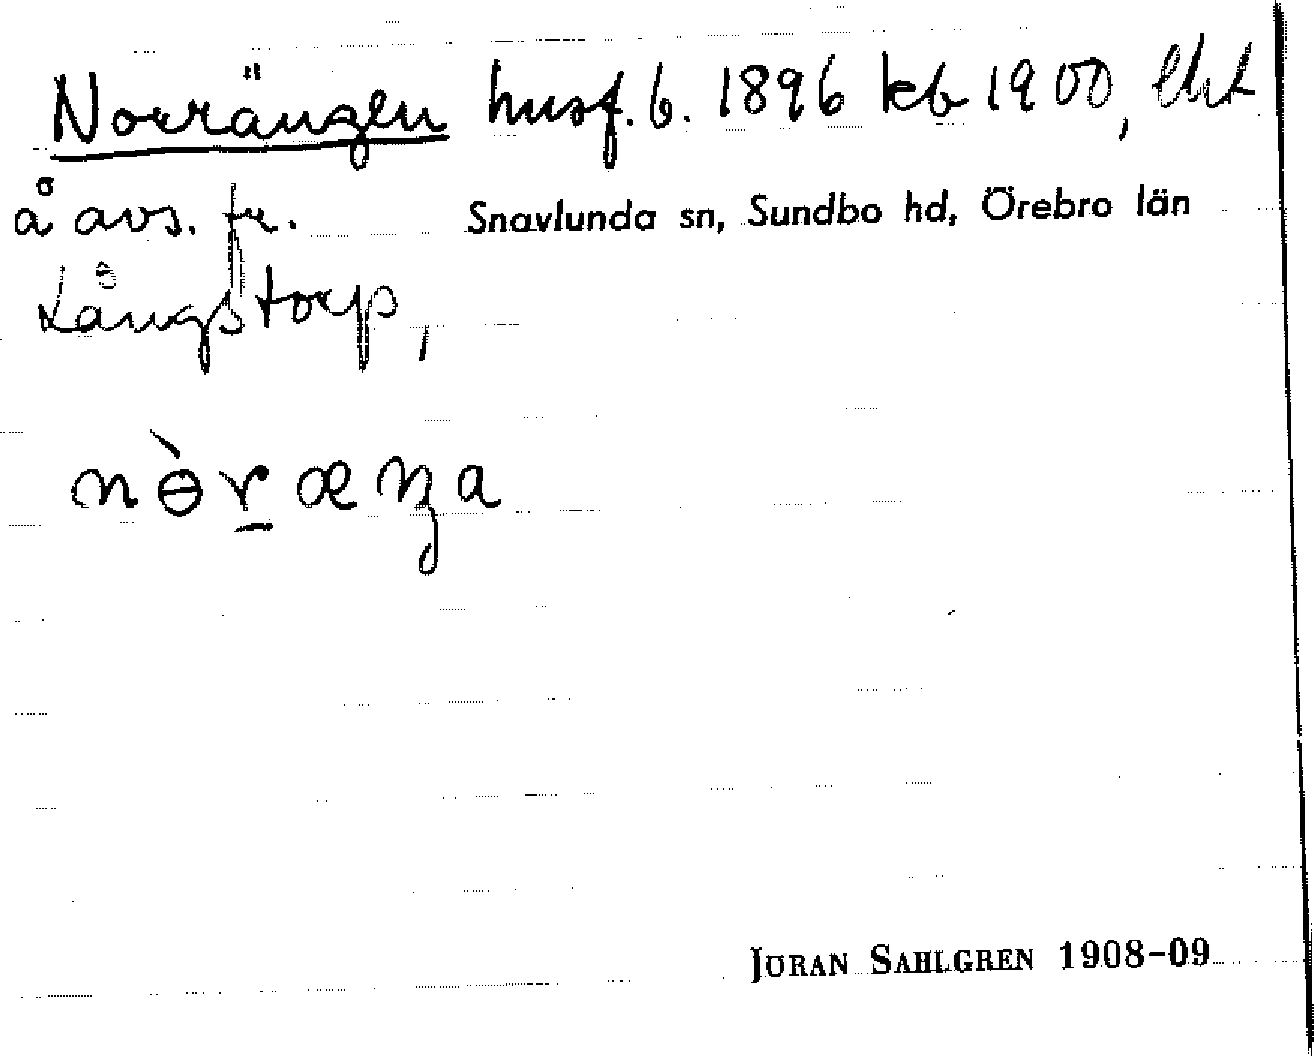 Norrängen husf. b. 1896 kb 1900, lht
å avs. fr.
Snavlunda sn, Sundbo hd, Örebro län
Långstorp,
nɵ̀r̲æŋa
JÖRAN SAHLGREN 1908-09